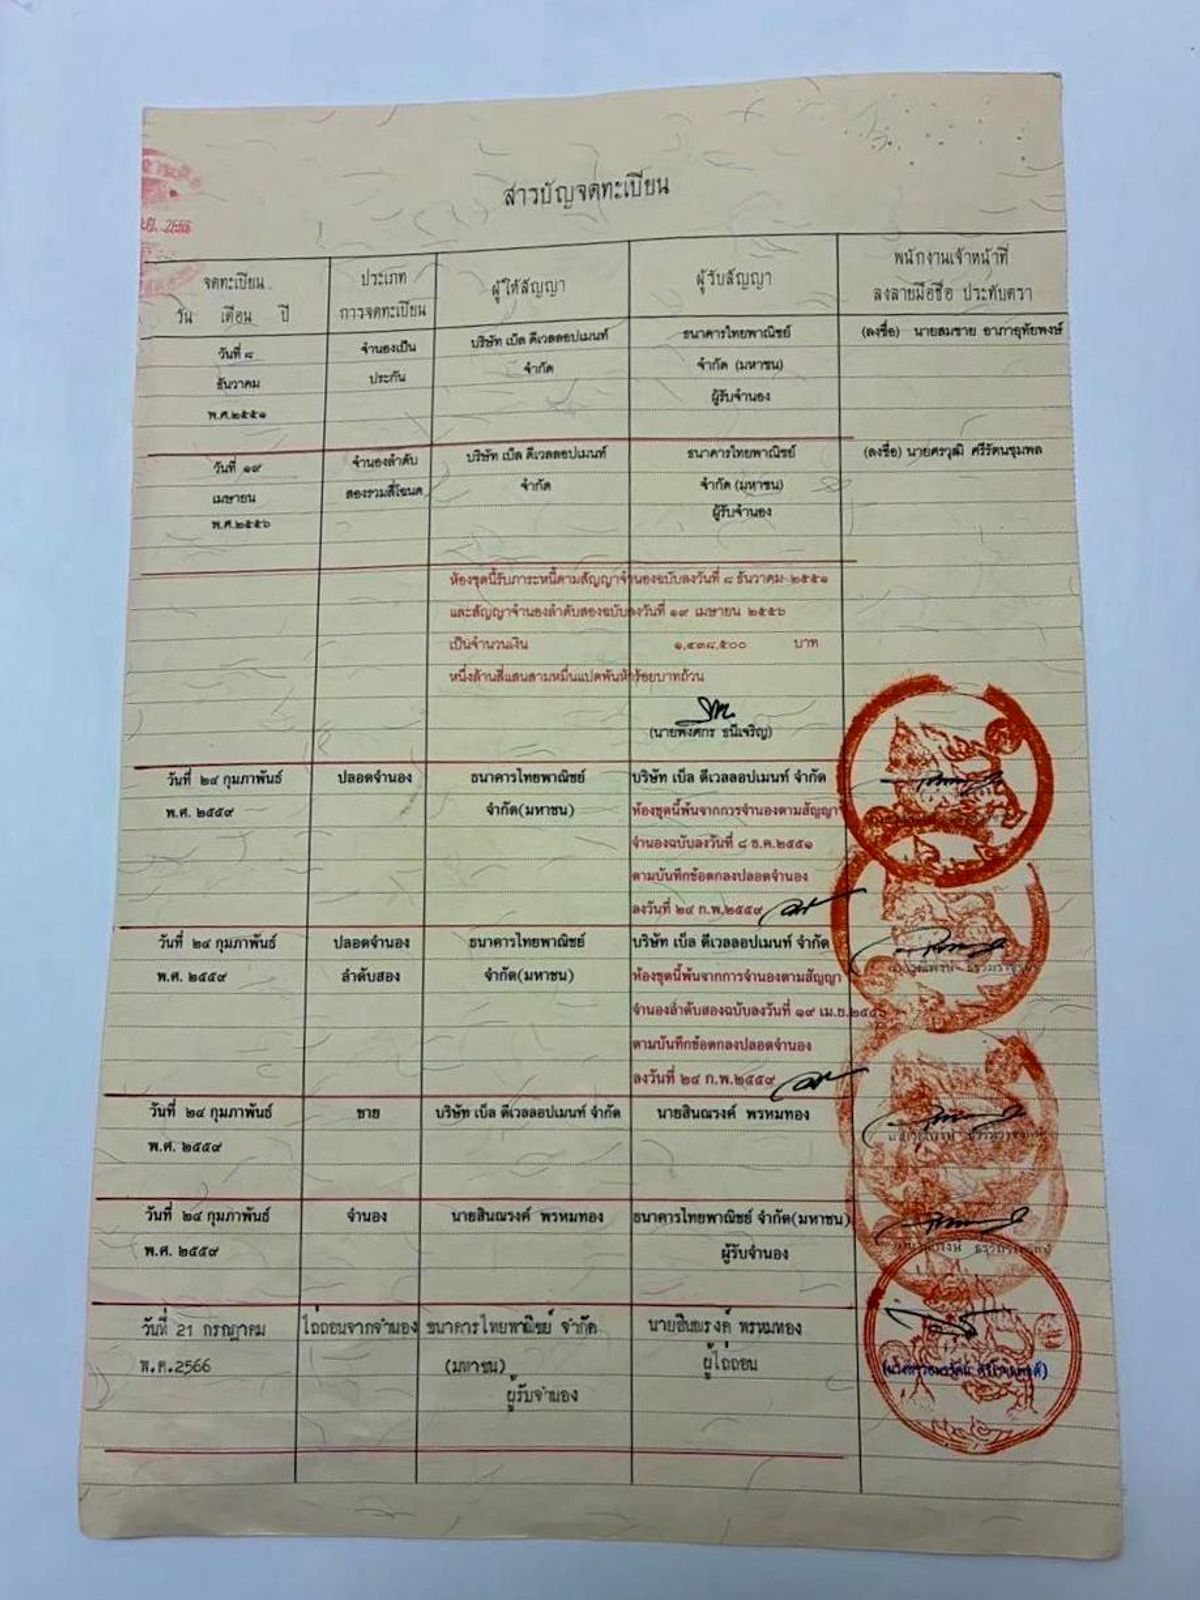 2566
สารบัญจดทะเบียน
จดทะเบียน
วัน เดือน ปี
ประเภท
การจดทะเบียน
ผู้ให้สัญญา
ผู้รับสัญญา
พนักงานเจ้าหน้าที่
ลงลายมือชื่อ ประทับตรา
วันที่ ๘
ธันวาคม
พ.ศ.๒๕๕๑
จำนองเป็น
ประกัน
บริษัท เบ็ล ดีเวลลอปเมนท์
จำกัด
ธนาคารไทยพาณิชย์
จำกัด (มหาชน)
ผู้รับจำนอง
(ลงชื่อ) นายสมชาย อาภาอุทัยพงษ์
วันที่ ๑๙
เมษายน
พ.ศ.๒๕๕๖
จำนองลำดับ
สองรวมสี่โฉนด
บริษัท เบ็ล ดีเวลลอปเมนท์
จำกัด
ธนาคารไทยพาณิชย์
จำกัด (มหาชน)
ผู้รับจำนอง
(ลงชื่อ) นายศรวุฒิ ศรีรัตนชุมพล
ห้องชุดนี้รับภาระหนี้ตามสัญญาจำนองฉบับลงวันที่ ๘ ธันวาคม ๒๕๕๑
และสัญญาจำนองลำดับสองฉบับลงวันที่ ๑๙ เมษายน ๒๕๕๖
เป็นจำนวนเงิน ๑,๔๓๘,๕๐๐ บาท
หนึ่งล้านสี่แสนสามหมื่นแปดพันห้าร้อยบาทถ้วน
(นายพงศกร ธนีเจริญ)
วันที่ ๒๔ กุมภาพันธ์
พ.ศ. ๒๕๕๙
ปลอดจำนอง
ธนาคารไทยพาณิชย์
จำกัด(มหาชน)
บริษัท เบ็ล ดีเวลลอปเมนท์ จำกัด
ห้องชุดนี้พ้นจากการจำนองตามสัญญา
จำนองฉบับลงวันที่ ๘ ธ.ค.๒๕๕๑
ตามบันทึกข้อตกลงปลอดจำนอง
ลงวันที่ ๒๔ ก.พ.๒๕๕๙
วันที่ ๒๔ กุมภาพันธ์
พ.ศ. ๒๕๕๙
ปลอดจำนอง
ลำดับสอง
ธนาคารไทยพาณิชย์
จำกัด(มหาชน)
บริษัท เบ็ล ดีเวลลอปเมนท์ จำกัด
ห้องชุดนี้พ้นจากการจำนองตามสัญญา
จำนองลำดับสองฉบับลงวันที่ ๑๙ เม.ย.๒๕๕๖
ตามบันทึกข้อตกลงปลอดจำนอง
ลงวันที่ ๒๔ ก.พ.๒๕๕๙
วันที่ ๒๔ กุมภาพันธ์
พ.ศ. ๒๕๕๙
ขาย
บริษัท เบ็ล ดีเวลลอปเมนท์ จำกัด
นายสินณรงค์ พรหมทอง
วันที่ ๒๔ กุมภาพันธ์
พ.ศ. ๒๕๕๙
จำนอง
นายสินณรงค์ พรหมทอง
ธนาคารไทยพาณิชย์ จำกัด(มหาชน)
ผู้รับจำนอง
วันที่ 21 กรกฎาคม
พ.ศ.2566
ไถ่ถอนจากจำนอง
ธนาคารไทยพาณิชย์ จำกัด
(มหาชน)
ผู้รับจำนอง
นายสินณรงค์ พรหมทอง
ผู้ไถ่ถอน